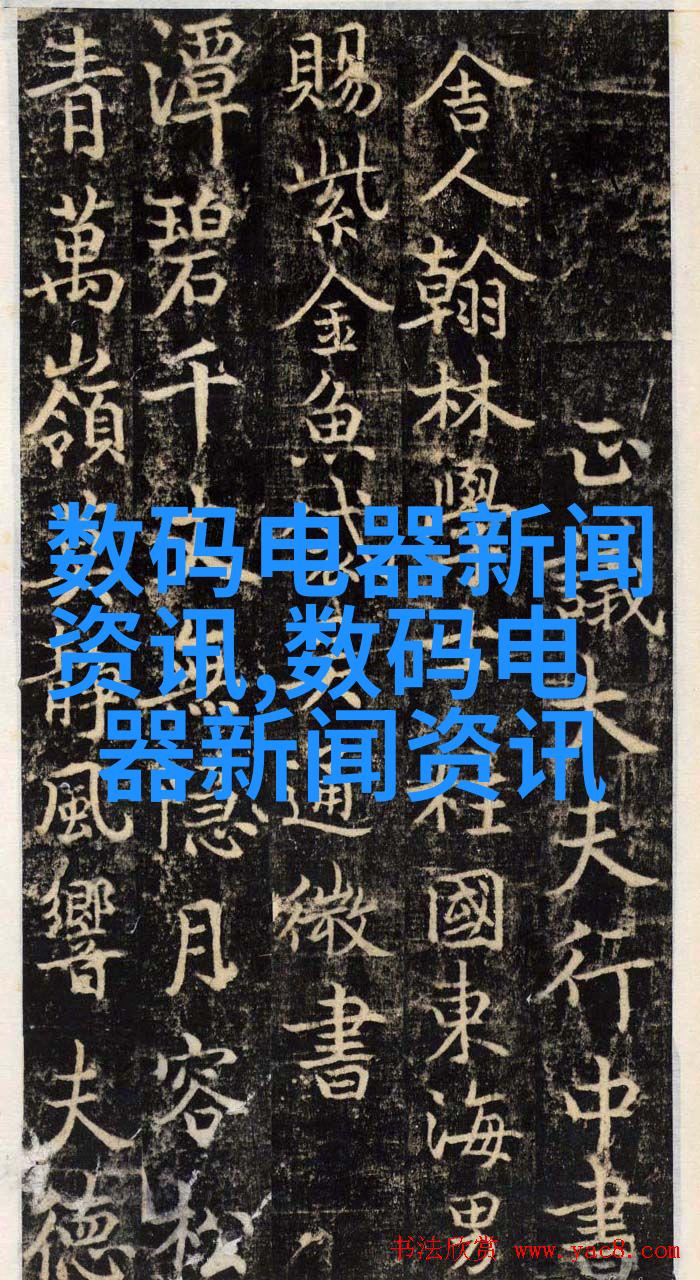 正議大夫行中書
舍人翰林學士柱國東海男
賜紫金魚袋通微書
潭碧千丈無隱月容松
青萬嶺静風響夫德
数码电器新闻
资讯,数码电
器新闻资讯
书法欣赏 www.yac8.com